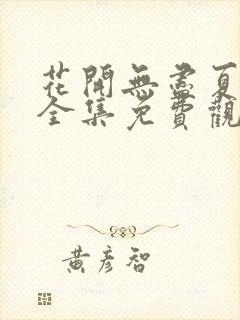 花開無盡夏
全集免費觀
黃彥智